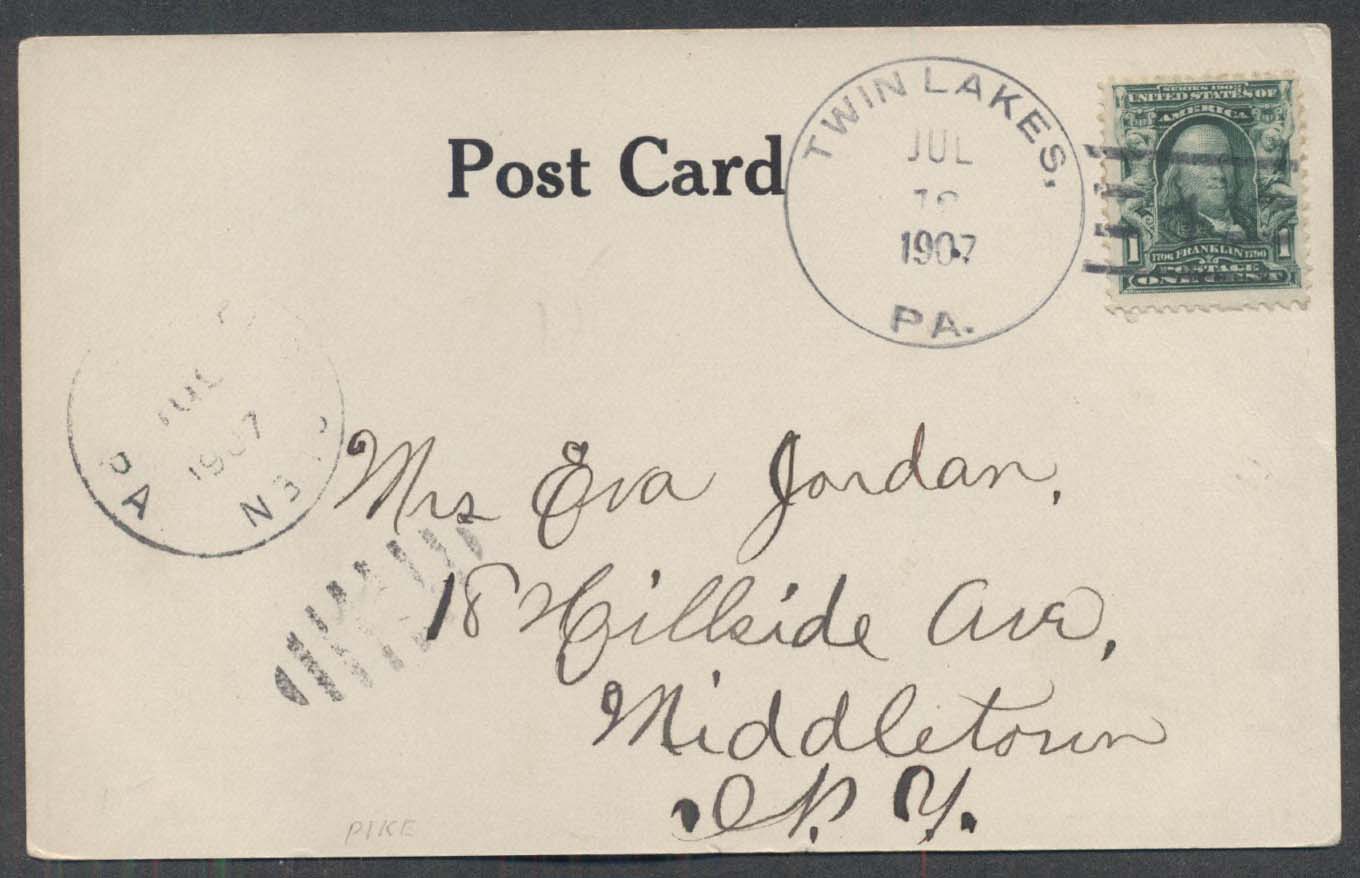 Post Card
TWIN LAKES,
JUL
1907
PA.
SERIES 1902
UNITED STATES OF
AMERICA
1 1
1706 FRANKLIN 1790
POSTAGE
ONE CENT
1907
PA
Mrs Eva Jordan,
18 Hillside Ave,
Middletown
N. Y.
PIKE